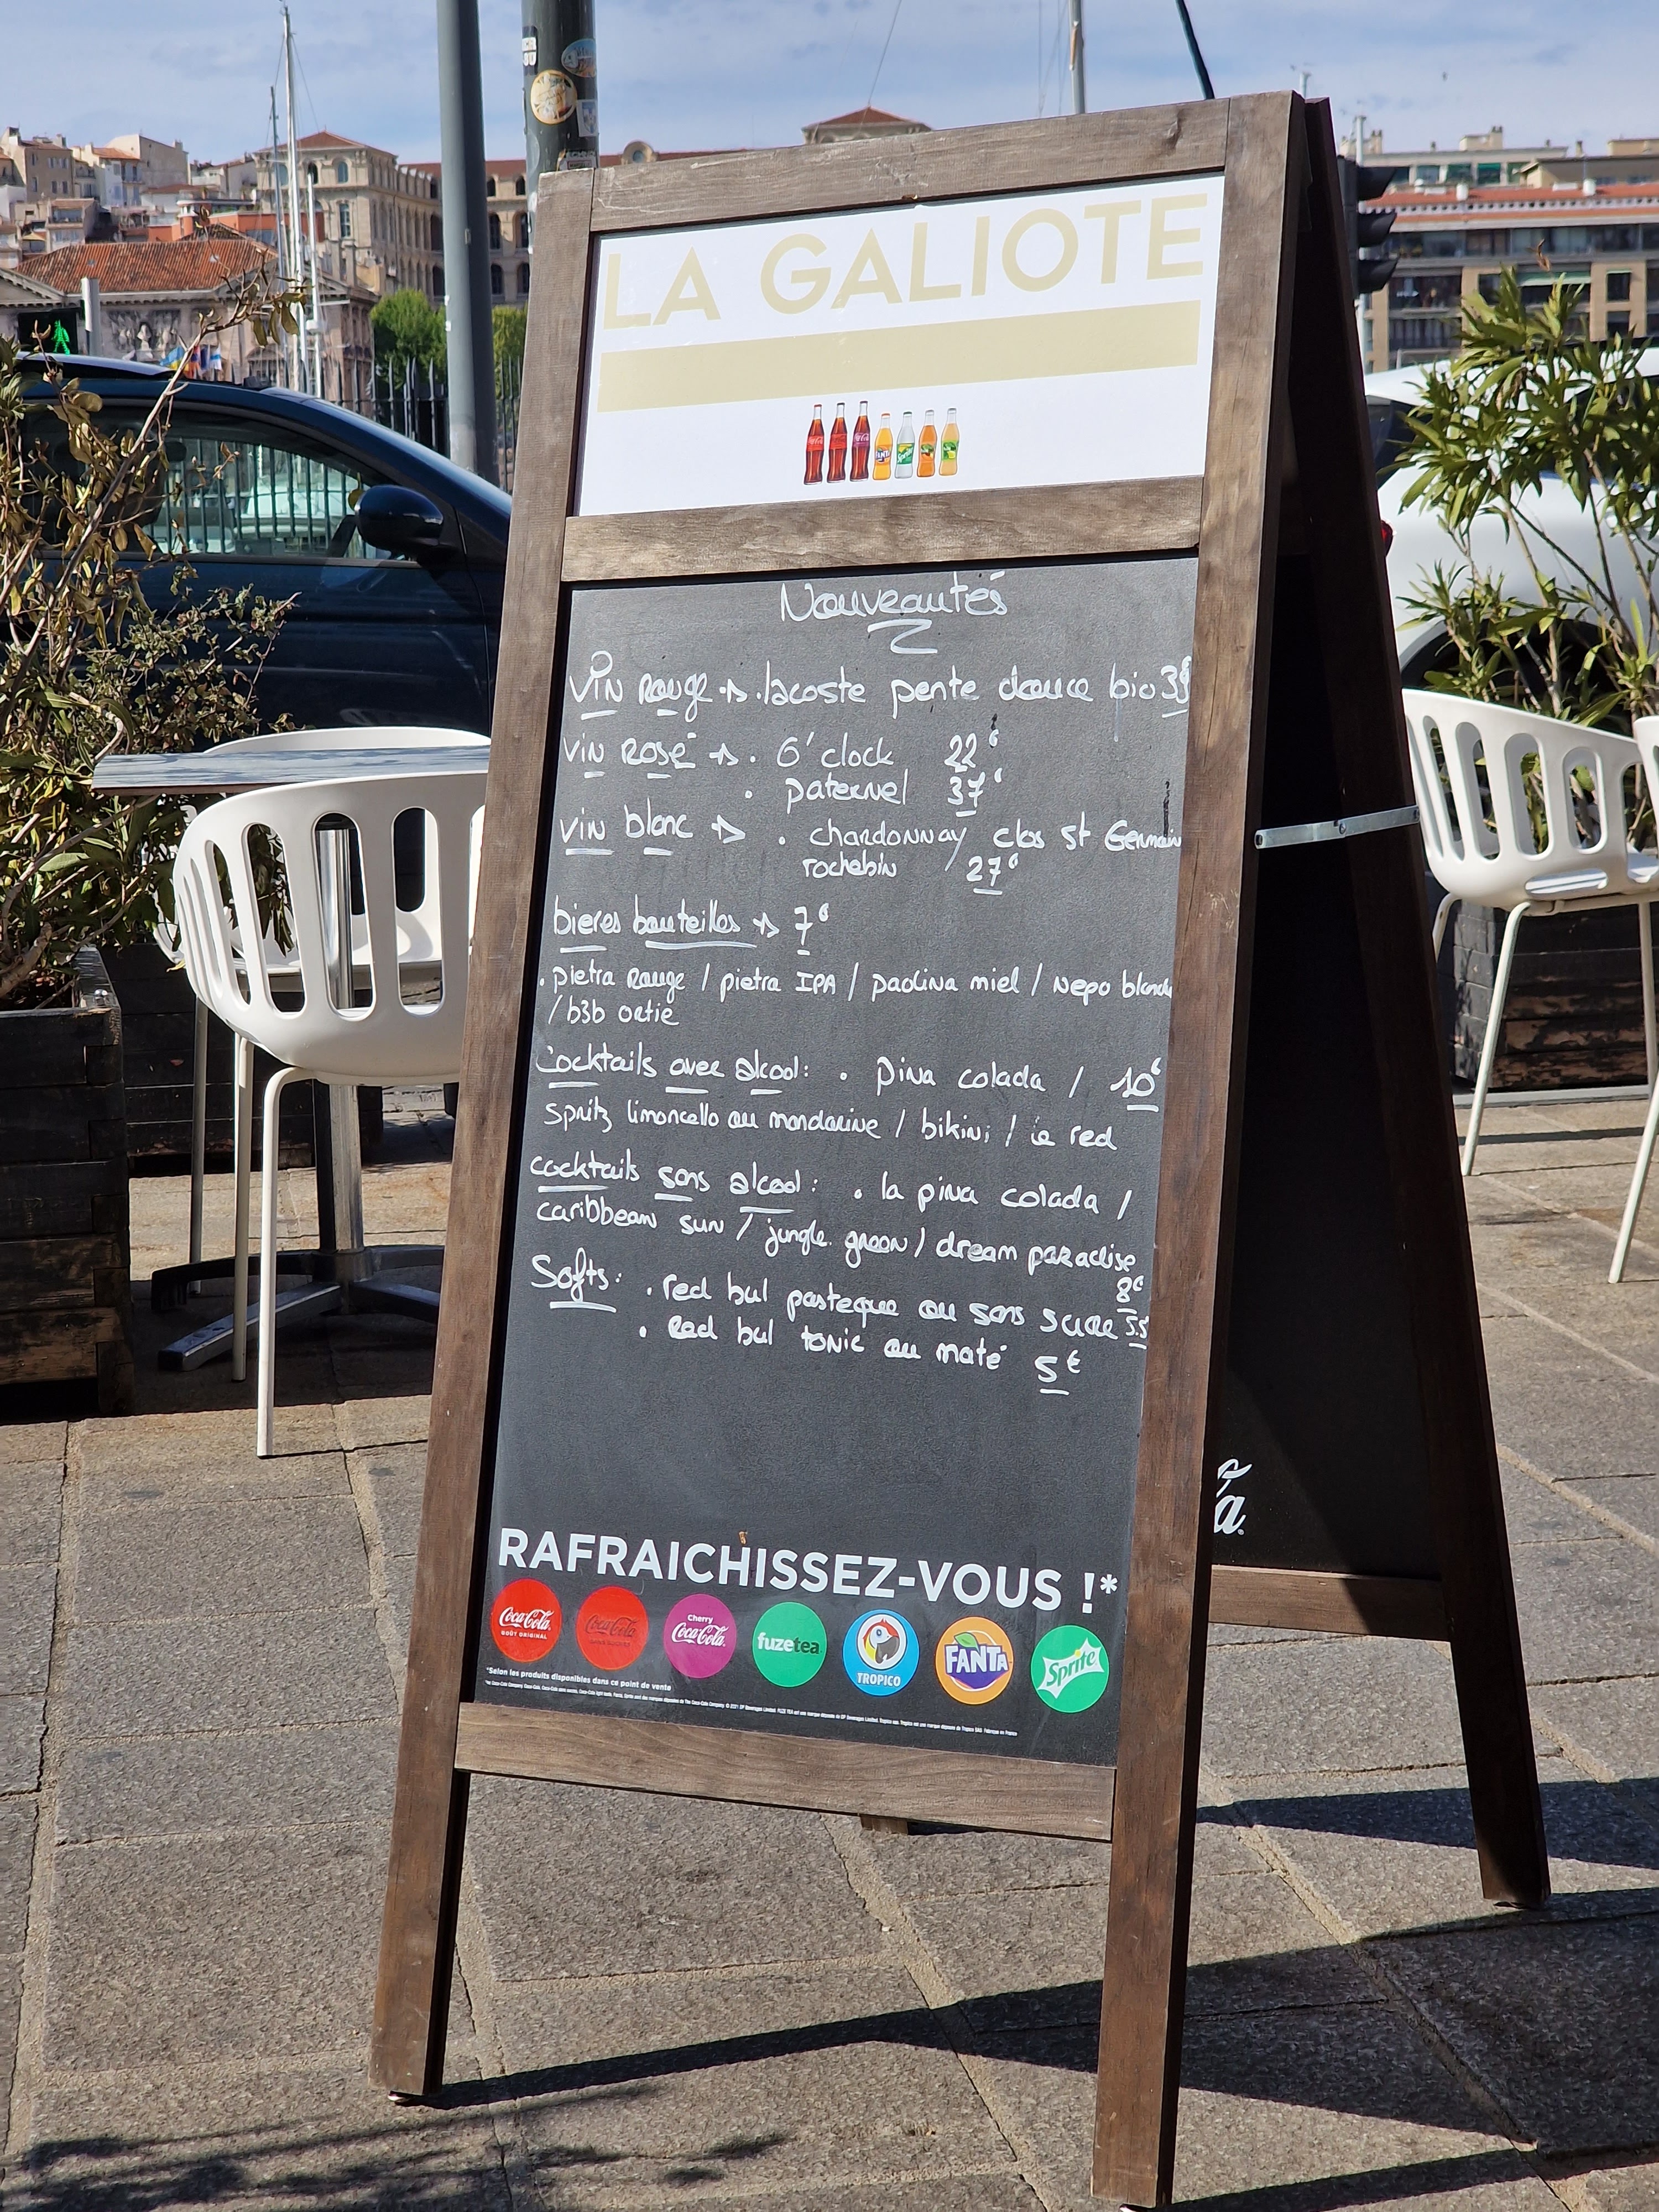 LA GALIOTE
Nouveautés
Vin Rouge → . lacoste pente douce bio
vin Rosé → . O'clock 22€
. paternel 37€
vin blanc → . chardonnay clos st Germain
rochebin / 27€
bieres bouteilles → 7€
. pietra Rouge / pietra IPA / paolina miel / Nepo blanche
/ b3b ortie
Cocktails avec alcool: . pina colada / 10€
Spritz limoncello ou mandarine / bikini / le red
cocktails sans alcool: . la pina colada /
caribbean sun / jungle green / dream paradise
8€
Softs: . red bul pasteque ou sans sucre 5.5
. Red bul tonic ou maté 5€
RAFRAICHISSEZ-VOUS !*
Coca-Cola GOÛT ORIGINAL Coca-Cola Cherry Coca-Cola fuzetea TROPICO FANTA Sprite
*Selon les produits disponibles dans ce point de vente
a